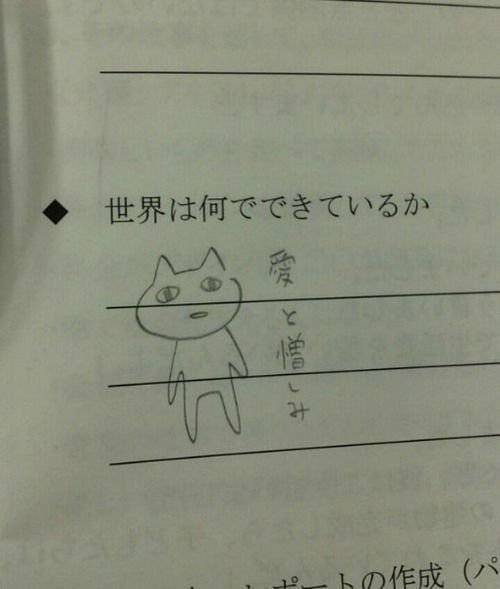 ◆ 世界は何でできているか
愛と憎しみ
ポートの作成（パ